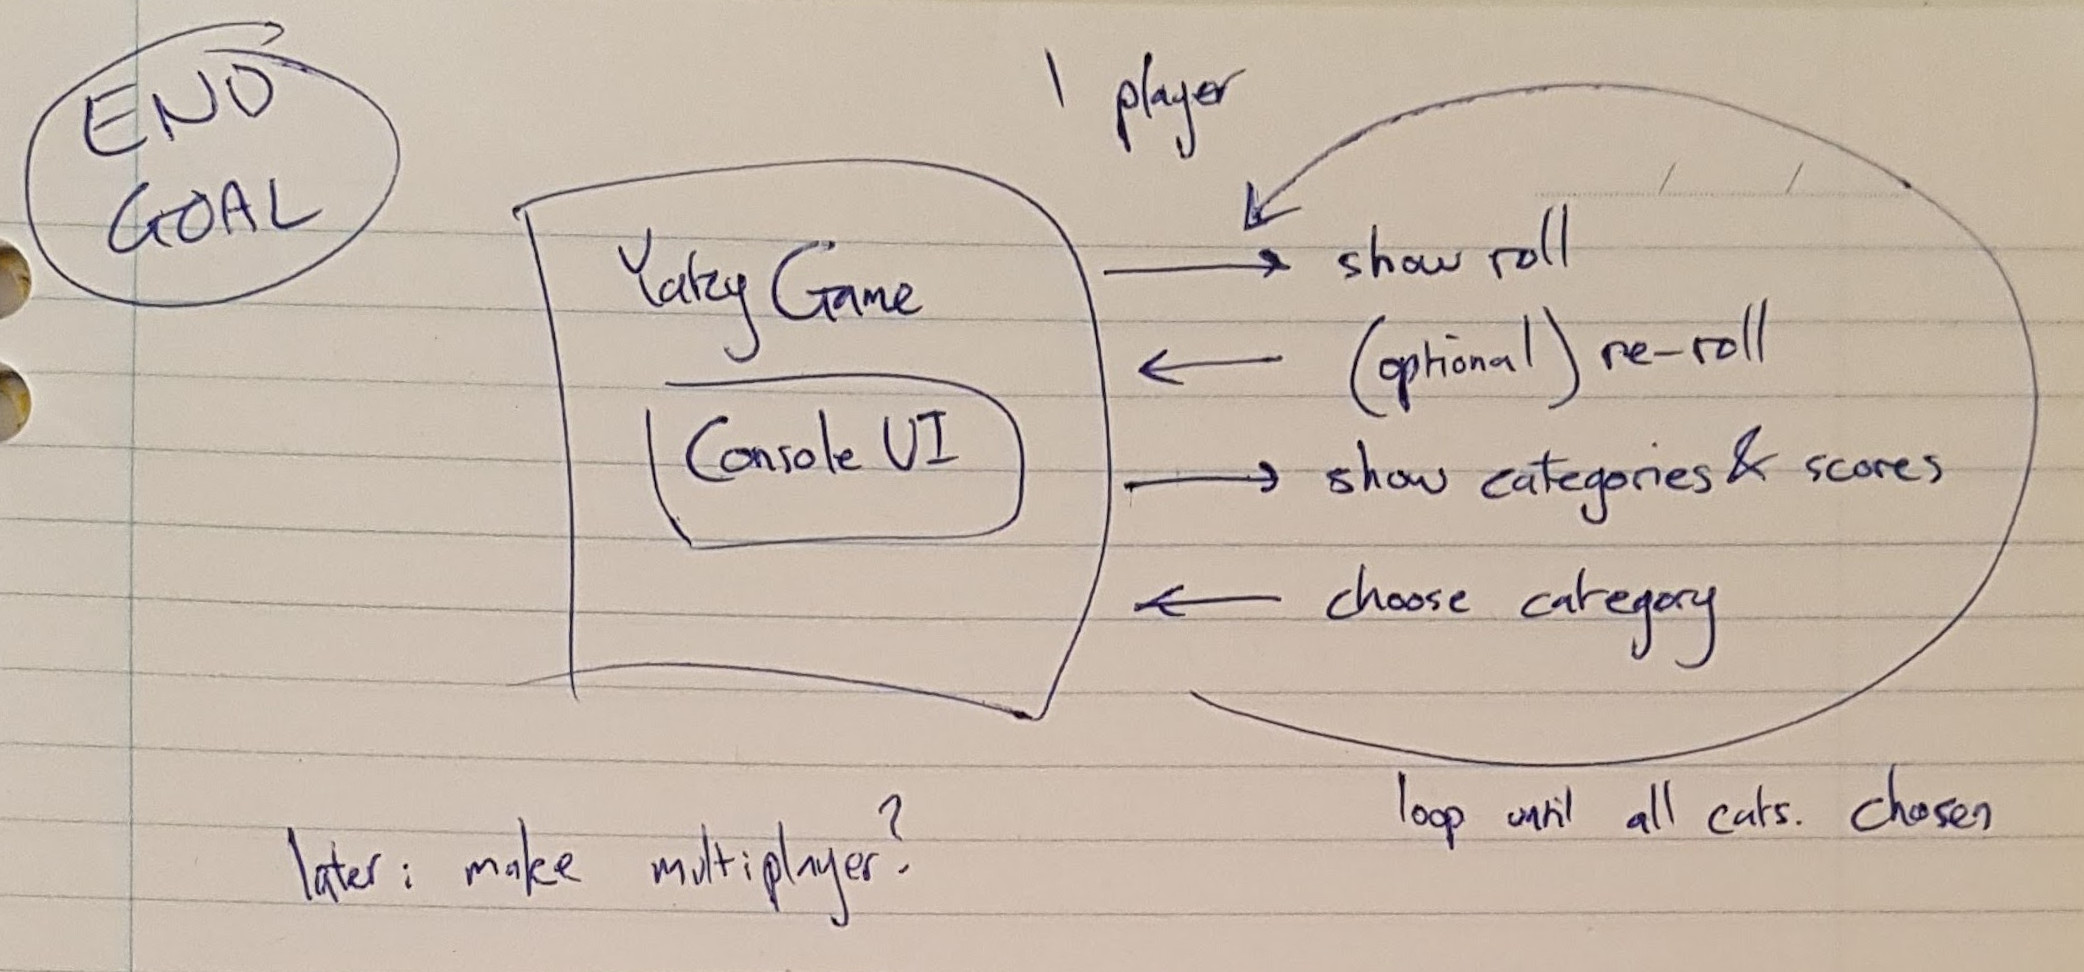 END
GOAL
1 player
Yatzy Game
Console UI
show roll
(optional) re-roll
show categories & scores
choose category
loop until all cats. chosen
later: make multiplayer?